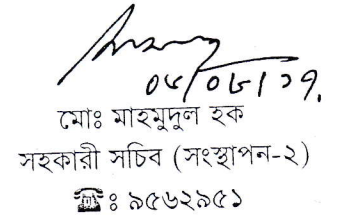 ০৫/০৮/১৭.
মোঃ মাহমুদুল হক
সহকারী সচিব (সংস্থাপন-২)
☎ : ৯৫৬২৯৫১